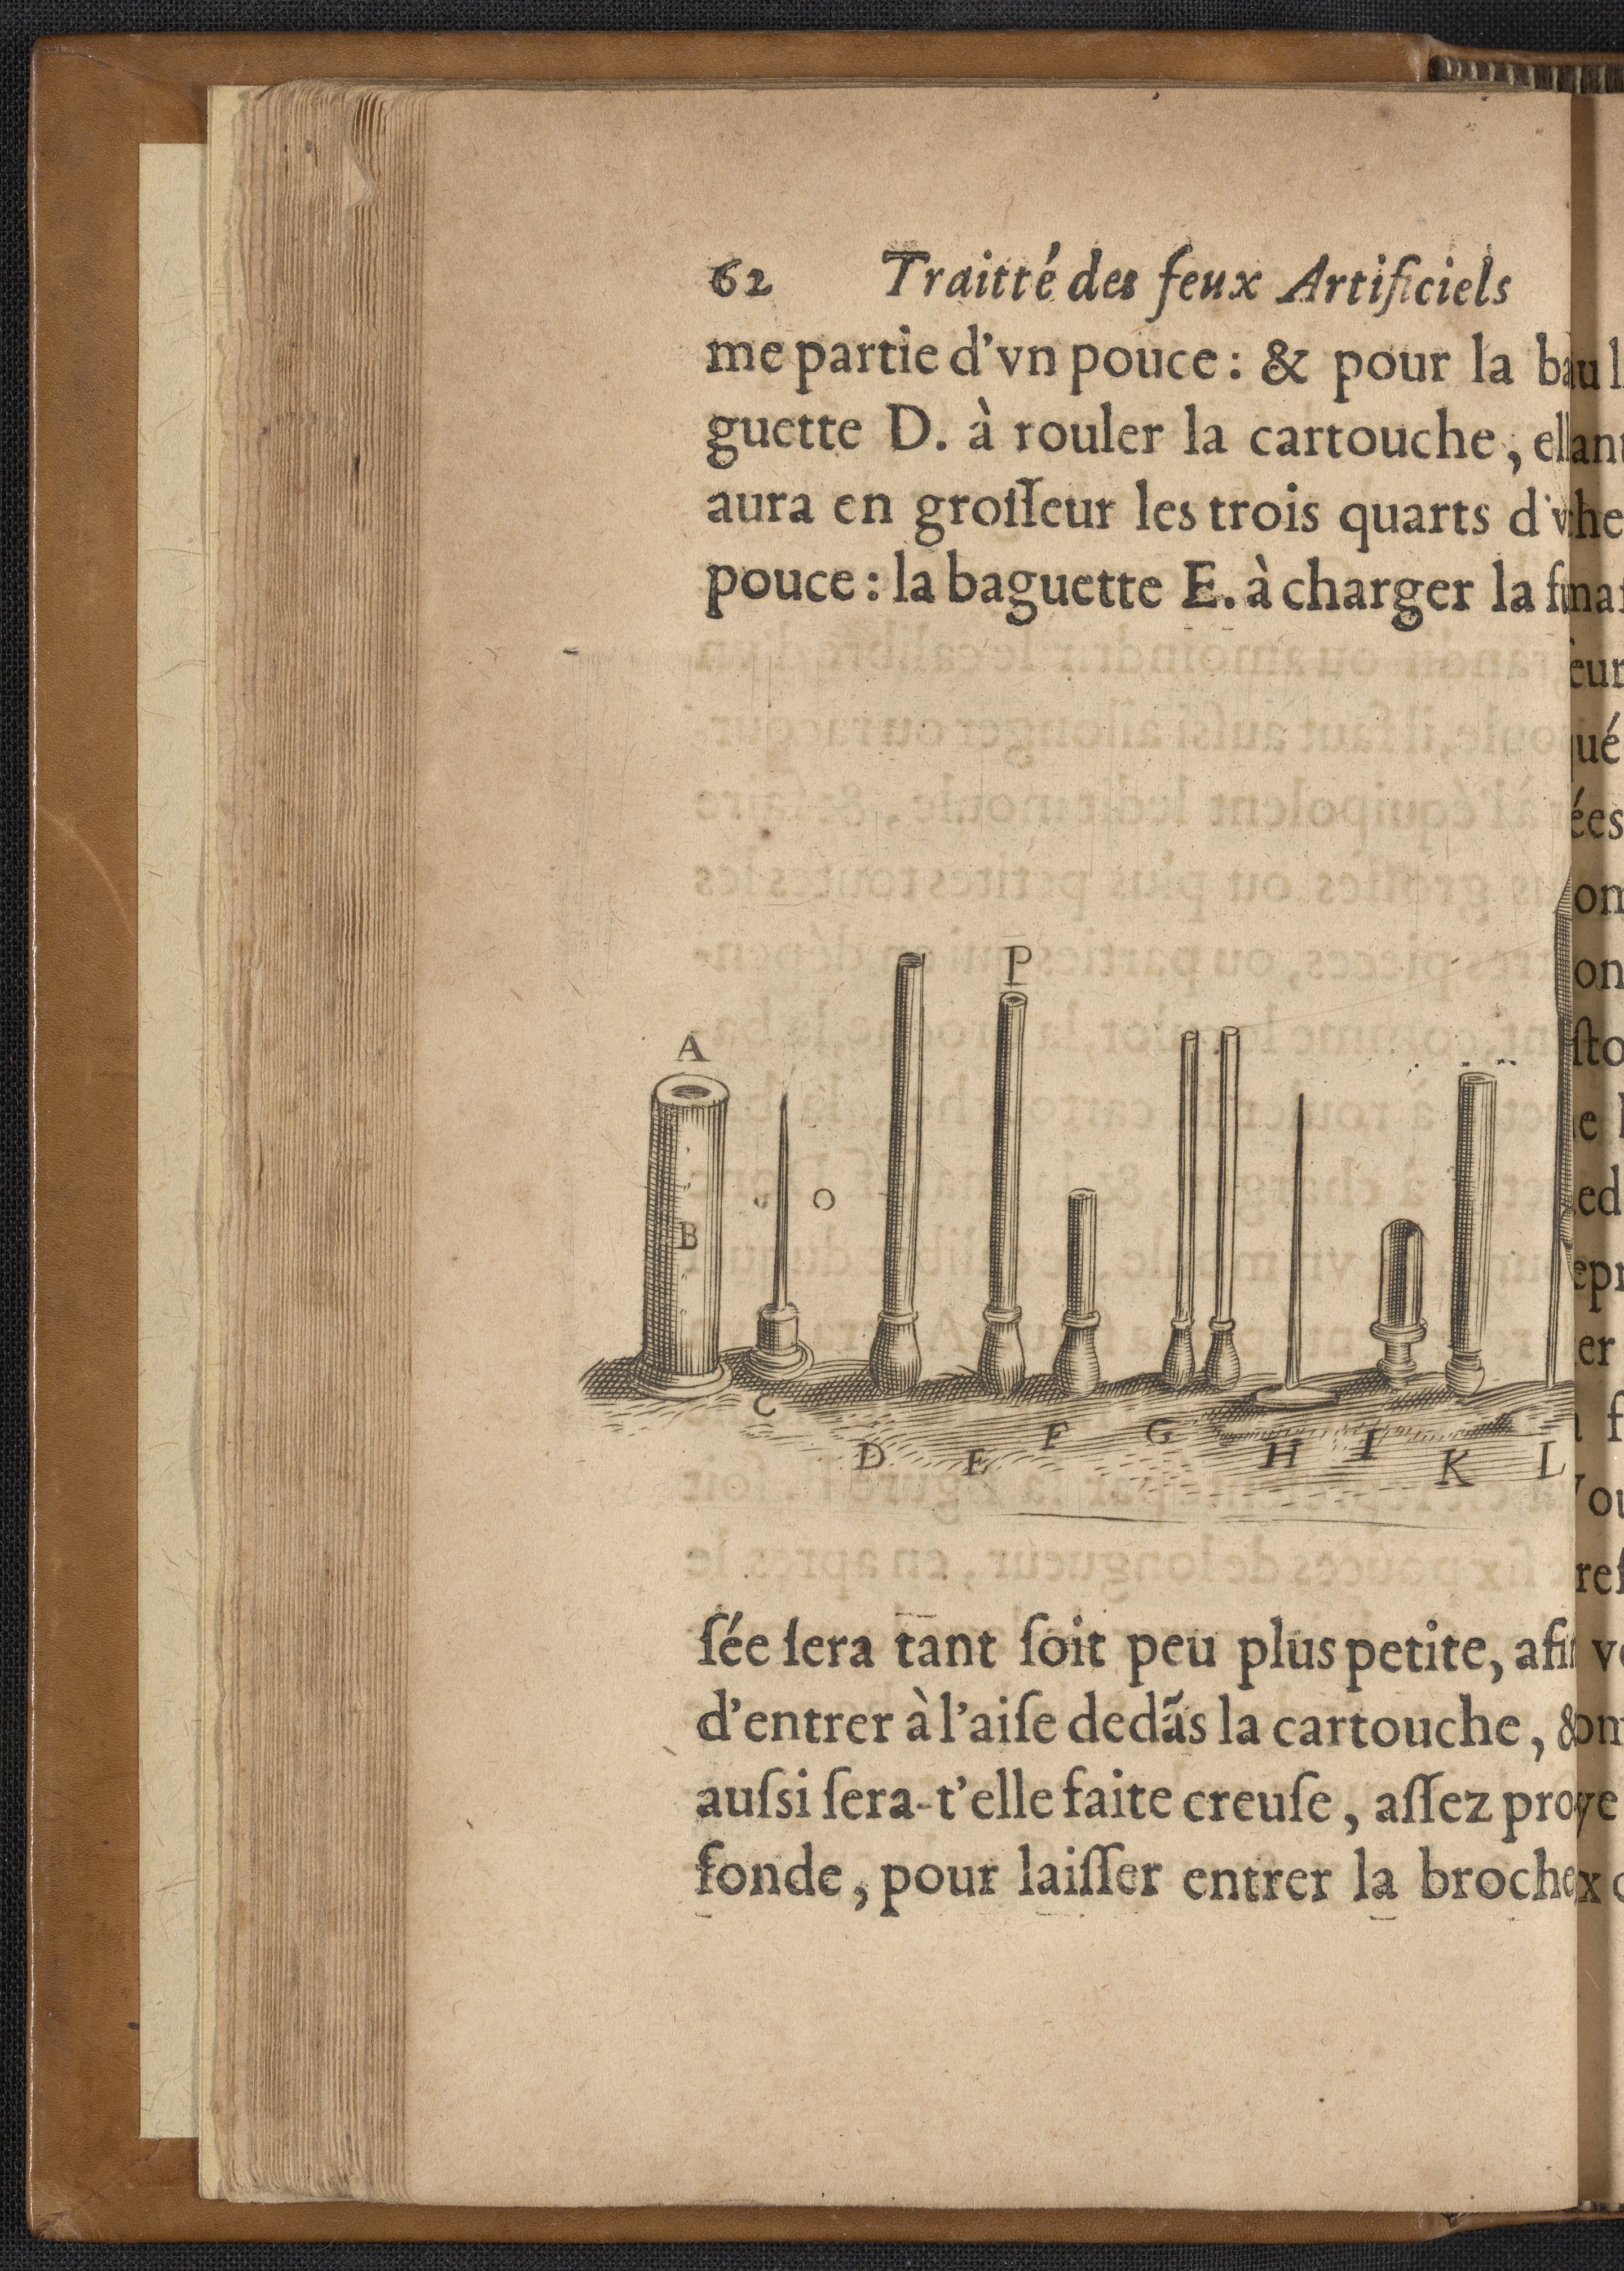 62 Traitté des feux Artificiels
me partie d'vn pouce: & pour la ba
guette D. à rouler la cartouche, ell
aura en groſſeur les trois quarts d'v
pouce: la baguette E. à charger la fu
P
A
O
B
C
F G
D E H I K L
ſée ſera tant ſoit peu plus petite, afin
d'entrer à l'aiſe dedãs la cartouche, &
auſsi ſera-t'elle faite creuſe, aſſez pro
fonde, pour laiſſer entrer la broche